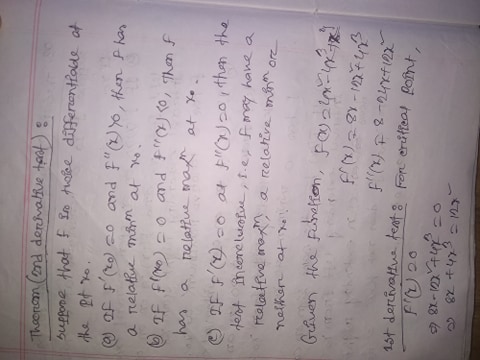 Theorem (2nd derivative test):
suppose that f is twice differentiable at
the pt x₀.
(a) If f'(x₀) = 0 and f''(x) > 0, then f has
a relative minm at x₀.
(b) If f'(x₀) = 0 and f''(x) < 0, then f
has a relative maxm at x₀.
(c) If f'(x) = 0 at f''(x) = 0, then the
test inconclusive, i.e., f may have a
relative maxm, a relative minm or
neither at x₀.
Given the function, f(x) = 4x² - 4x³ +
f'(x) = 8x - 12x² + 4x³
f''(x) = 8 - 24x + 12x²
1st derivative test: For critical point,
f'(x) = 0
⇒ 8x - 12x² + 4x³ = 0
⇒ 8x + 4x³ = 12x²